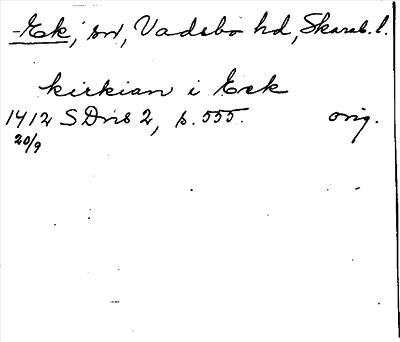 -Ek, sn, Vadsbo hd, Skarab. l.
kirkian i Eek
1412 SDns 2, s. 555. orig.
20/9